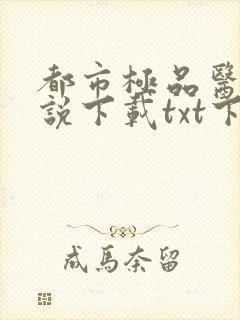 都市極品醫
說下載txt下
成馬奈留